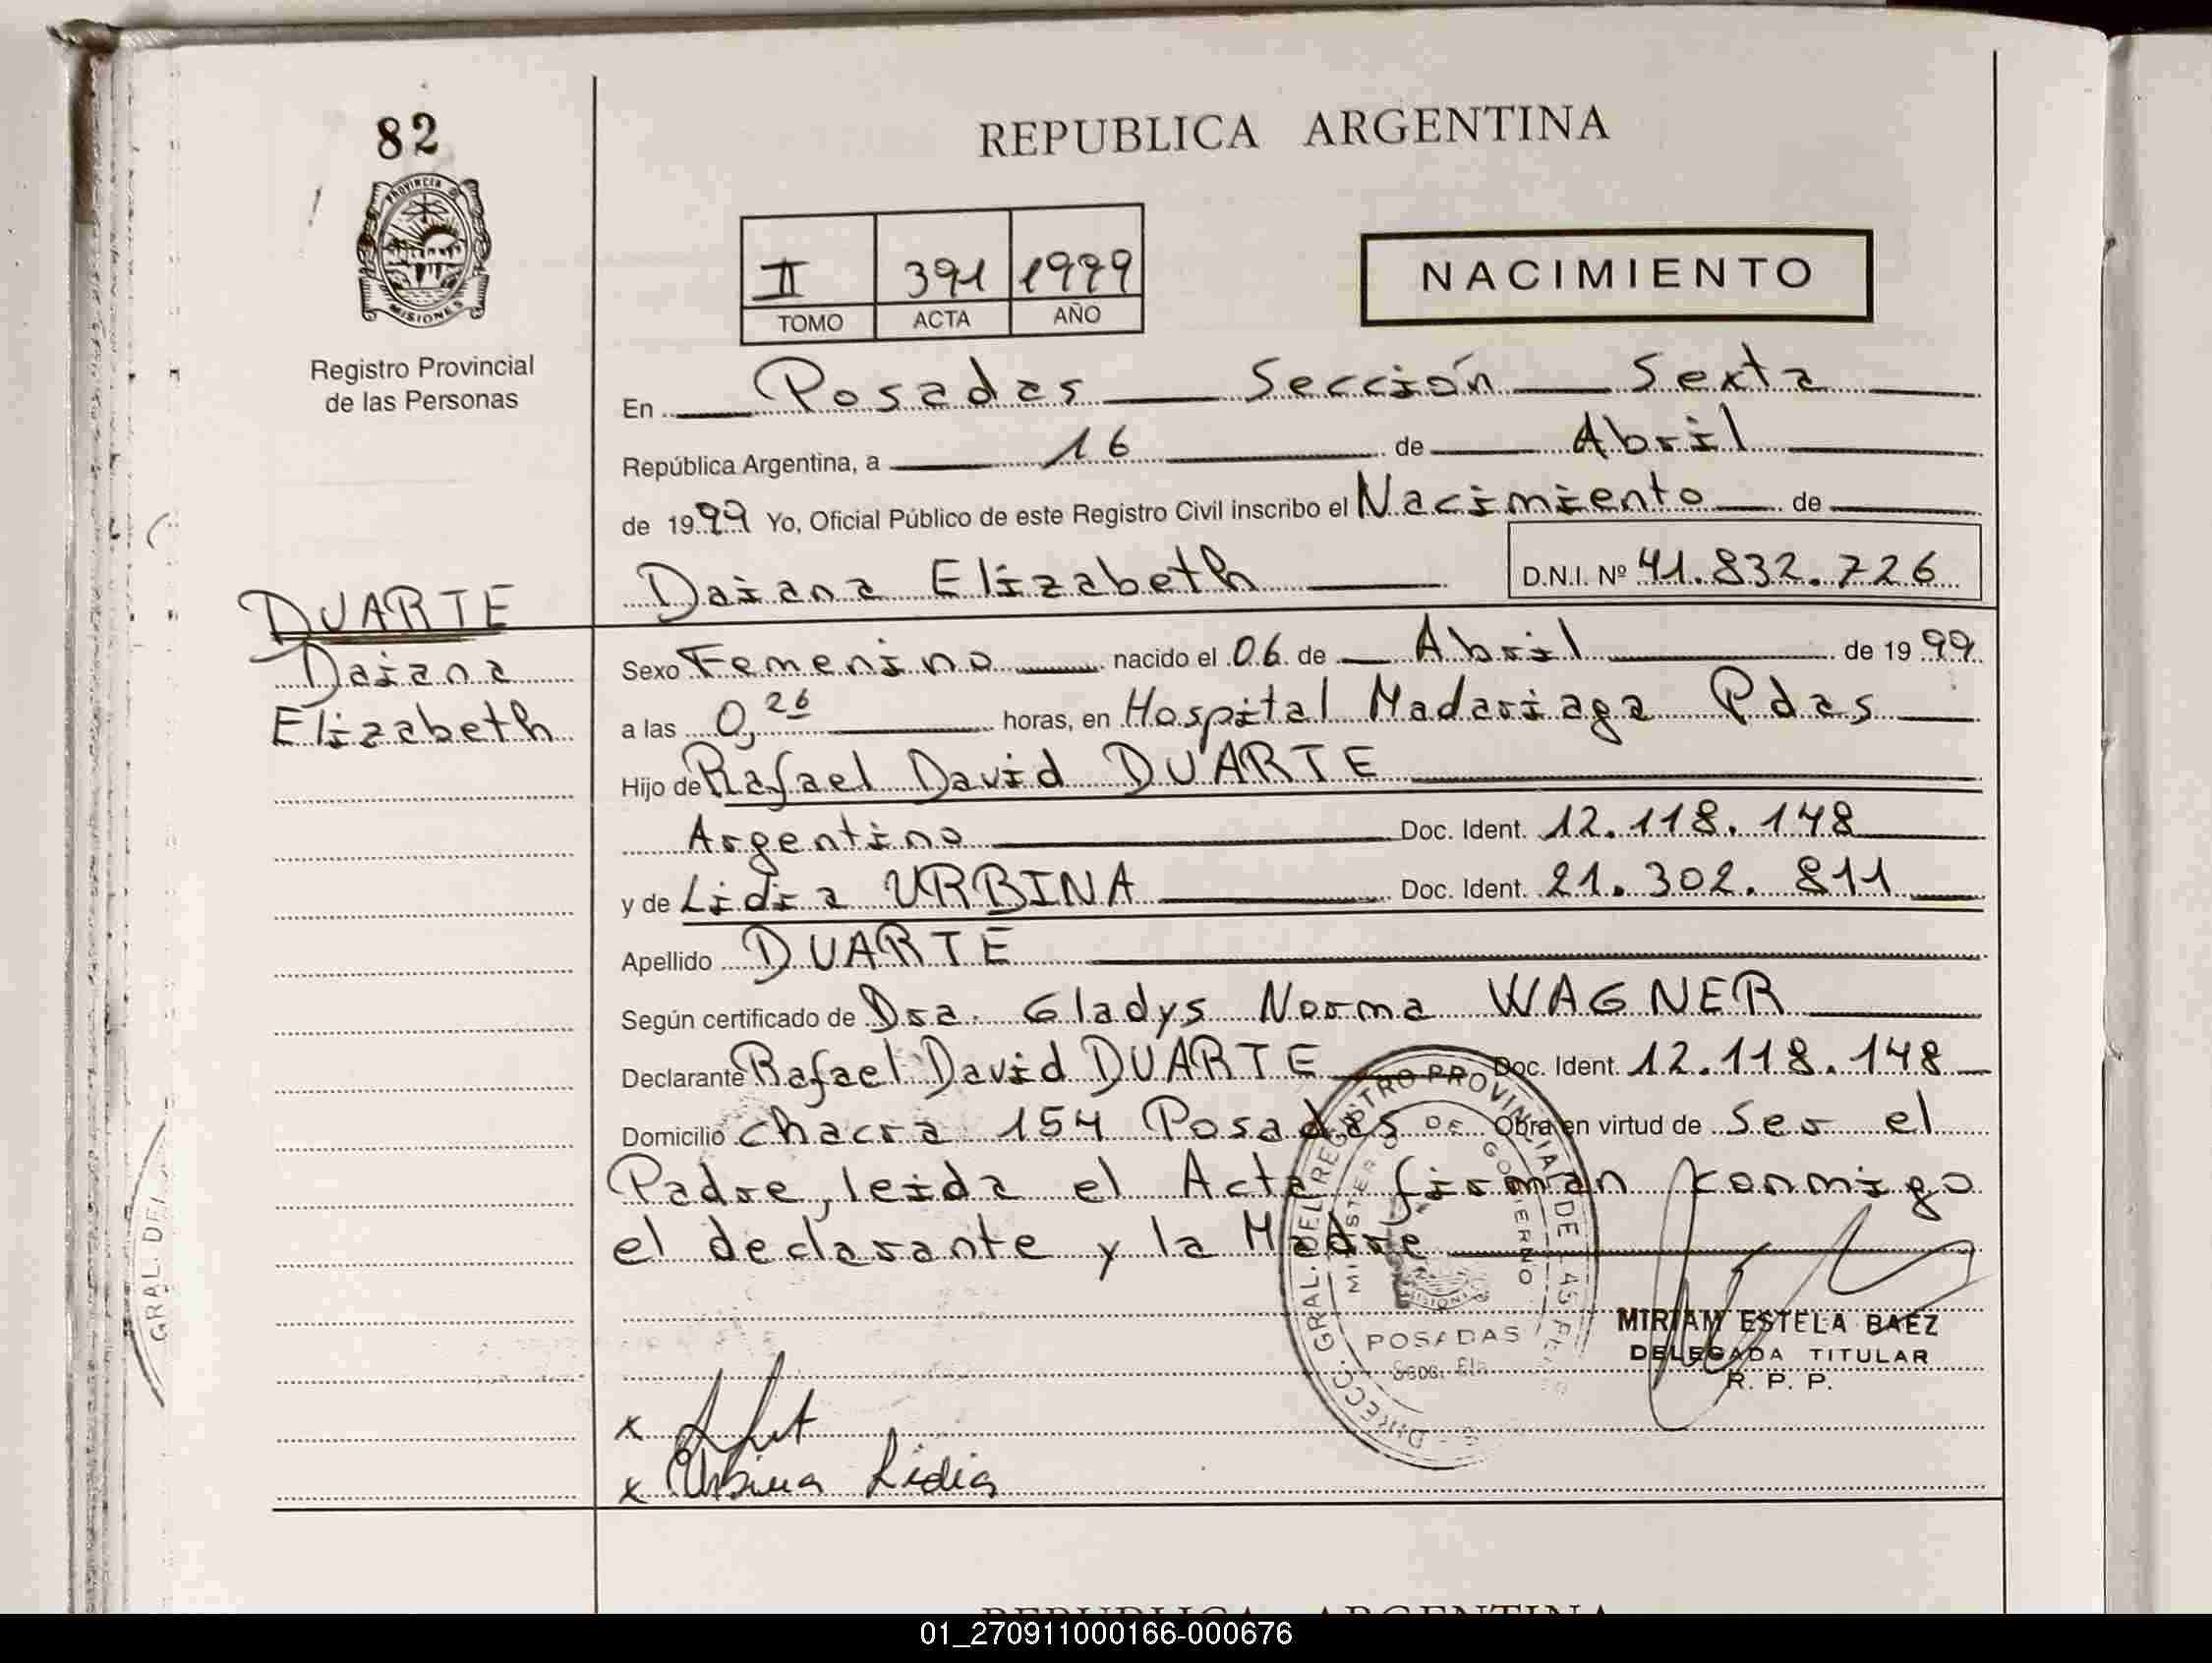 82
PROVINCIA D
MISIONES
Registro Provincial
de las Personas
REPUBLICA ARGENTINA
II 391 1999
TOMO ACTA AÑO
NACIMIENTO
En Posadas Sección Sexta
República Argentina, a 16 de Abril
de 1999 Yo, Oficial Público de este Registro Civil inscribo el Nacimiento de
Daiana Elizabeth D.N.I. Nº 41.832.726
DUARTE
Daiana
Elizabeth
Sexo Femenino nacido el 06 de Abril de 1999
a las 0,26 horas, en Hospital Madariaga Pdas
Hijo de Rafael David DUARTE
Argentino Doc. Ident. 12.118.148
y de Lidia URBINA Doc. Ident. 21.302.811
Apellido DUARTE
Según certificado de Dra. Gladys Norma WAGNER
Declarante Rafael David DUARTE Doc. Ident. 12.118.148
Domicilio chacra 154 Posadas Obra en virtud de Ser el
Padre, leida el Acta firman conmigo
el declarante y la Madre
DIRECC. GRAL. DEL REGISTRO PROVINCIAL DE
MINISTERIO DE GOBIERNO
POSADAS
MIRIAM ESTELA BAEZ
DELEGADA TITULAR
R. P. P.
x
x Urbina Lidia
GRAL. DEL
REPUBLICA ARGENTINA
01_270911000166-000676